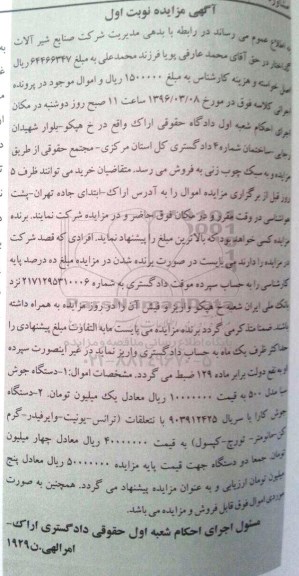 آگهی مزایده نوبت اول
به اطلاع عموم می رساند در رابطه با بدهی مدیریت شرکت صنایع شیر آلات
در حق آقای محمد عارفی پویا فرزند محمدعلی به مبلغ ۶۴۴۶۶۳۴۷ ریال
اصل خواسته و هزینه کارشناس به مبلغ ۱۵۰۰۰۰۰ ریال و اموال موجود در پرونده
اجرائی کلاسه فوق در مورخ ۱۳۹۶/۰۳/۰۸ ساعت ۱۱ صبح روز دوشنبه در مکان
اجرای احکام شعبه اول دادگاه حقوقی اراک واقع در خ هپکو-بلوار شهیدان
رجایی-ساختمان شماره۴ دادگستری کل استان مرکزی- مجتمع حقوقی از طریق
مزایده و به سبک چوب زنی به فروش می رسد. متقاضیان خرید می توانند ظرف ۵
روز قبل از برگزاری مزایده اموال را به آدرس اراک-ابتدای جاده تهران-پشت
هواشناسی در وقت مقرر و در مکان فوق حاضر و در مزایده شرکت نمایند. برنده
مزایده کسی خواهد بود که بالاترین مبلغ را پیشنهاد نماید. افرادی که قصد شرکت
در مزایده را دارند می بایست در صورت برنده شدن در مزایده مبلغ ده درصد پایه
کارشناسی را به حساب سپرده موقت دادگستری به شماره ۲۱۷۱۲۹۵۳۱۰۰۰۶ نزد
بانک ملی ایران شعبه خ هپکو واریز و فیش آن را در روز مزایده به همراه داشته
باشند. ضمنا متذکر می گردد برنده مزایده می بایست مابه التفاوت مبلغ پیشنهادی را
حداکثر ظرف یک ماه به حساب دادگستری واریز نماید در غیر اینصورت سپرده
او به نفع دولت برابر ماده ۱۲۹ ضبط می گردد. مشخصات اموال:۱-دستگاه جوش
صبا مدل ۵۰۰ به قیمت ۱۰۰۰۰۰۰۰ ریال معادل یک میلیون تومان. ۲-دستگاه
جوش کارا با سریال ۹۰۳۹۱۲۴۲۵ با متعلقات (ترانس-یونیت-وایرفیدر-گرم
کن-مانومتر- تورچ-کپسول) به قیمت ۴۰۰۰۰۰۰۰ ریال معادل چهار میلیون
تومان. جمعا دو دستگاه جهت قیمت پایه مزایده ۵۰۰۰۰۰۰۰ ریال معادل پنج
میلیون تومان ارزیابی و به عنوان مزایده پیشنهاد می گردد. همچنین به صورت
موردی اموال فوق قابل فروش و مزایده می باشد.
مسئول اجرای احکام شعبه اول حقوقی دادگستری اراک-
امرالهی.ن۱۹۲۹